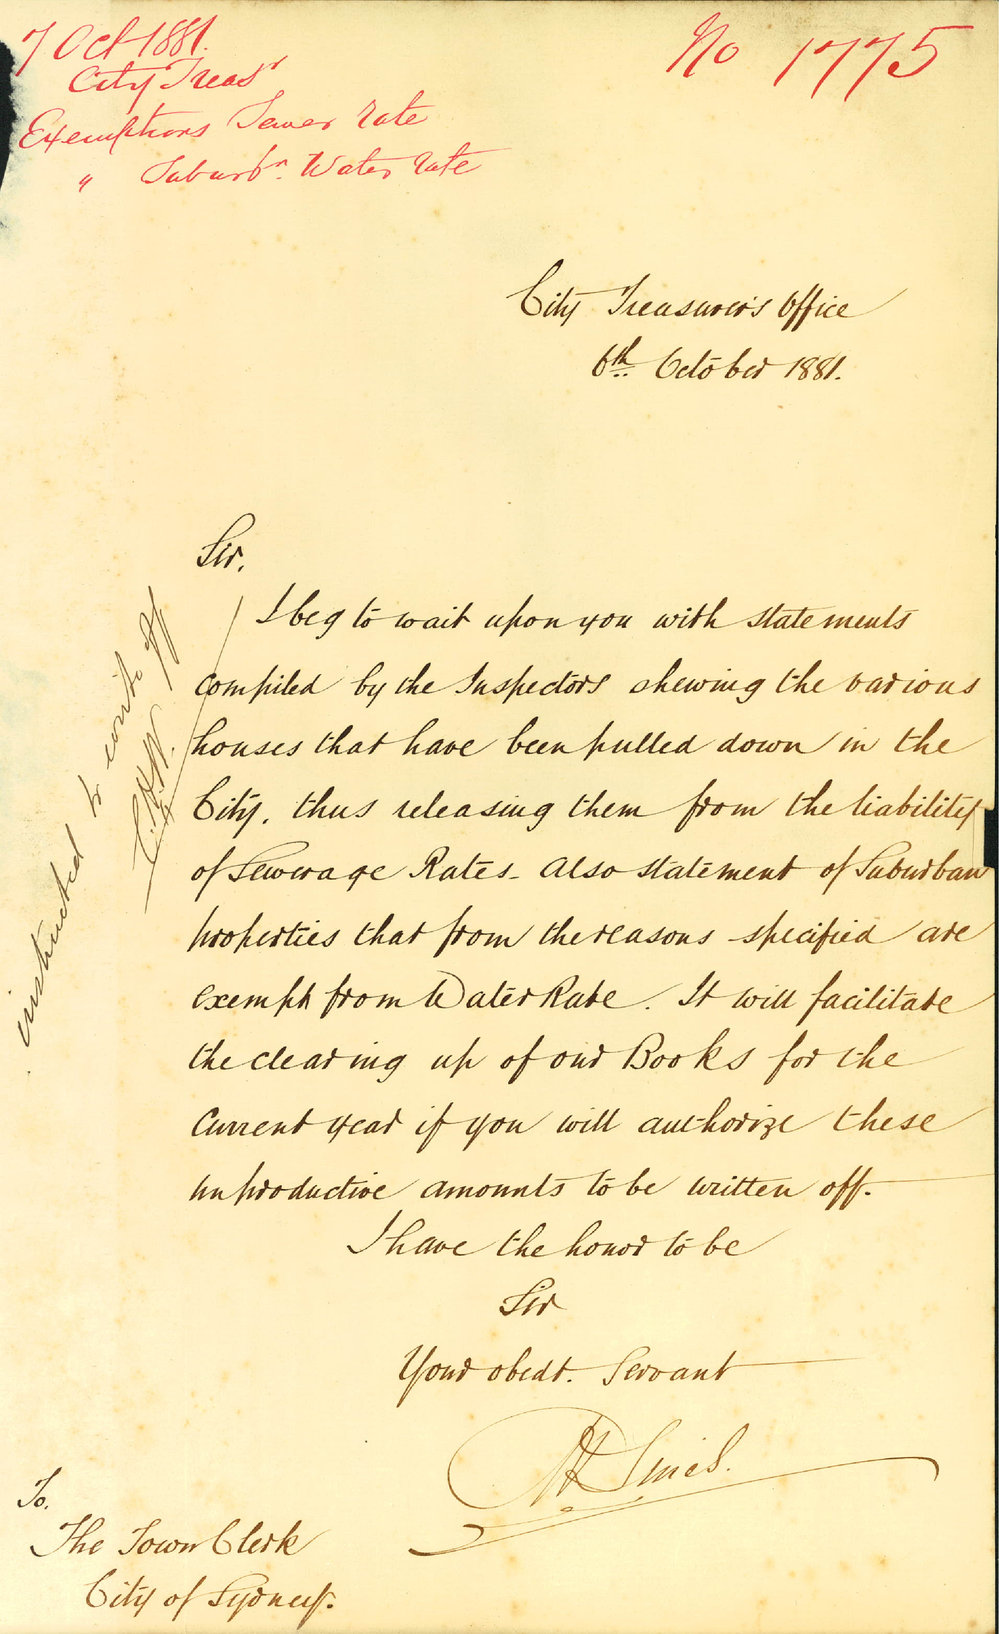 7 Oct 1881.
City Treasr
Exemptions Sewer Rate
" Suburbn. Water Rate
No 1775
City Treasurer's Office
6th October 1881.
Sir,
I beg to wait upon you with statements
compiled by the Inspectors shewing the various
houses that have been pulled down in the
City, thus releasing them from the liability
of Sewerage Rates - also statement of Suburban
properties that from the reasons specified are
exempt from Water Rate. It will facilitate
the clearing up of our Books for the
Current year if you will authorize these
unproductive amounts to be written off.
I have the honor to be
Sir
Your obedt. Servant
To.
The Town Clerk
City of Sydney.
instructed to write off